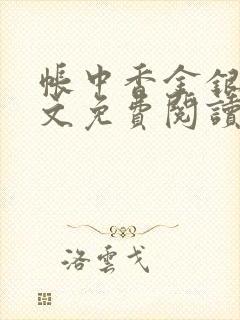 帳中香金銀
文免費閱讀
洛雲戈